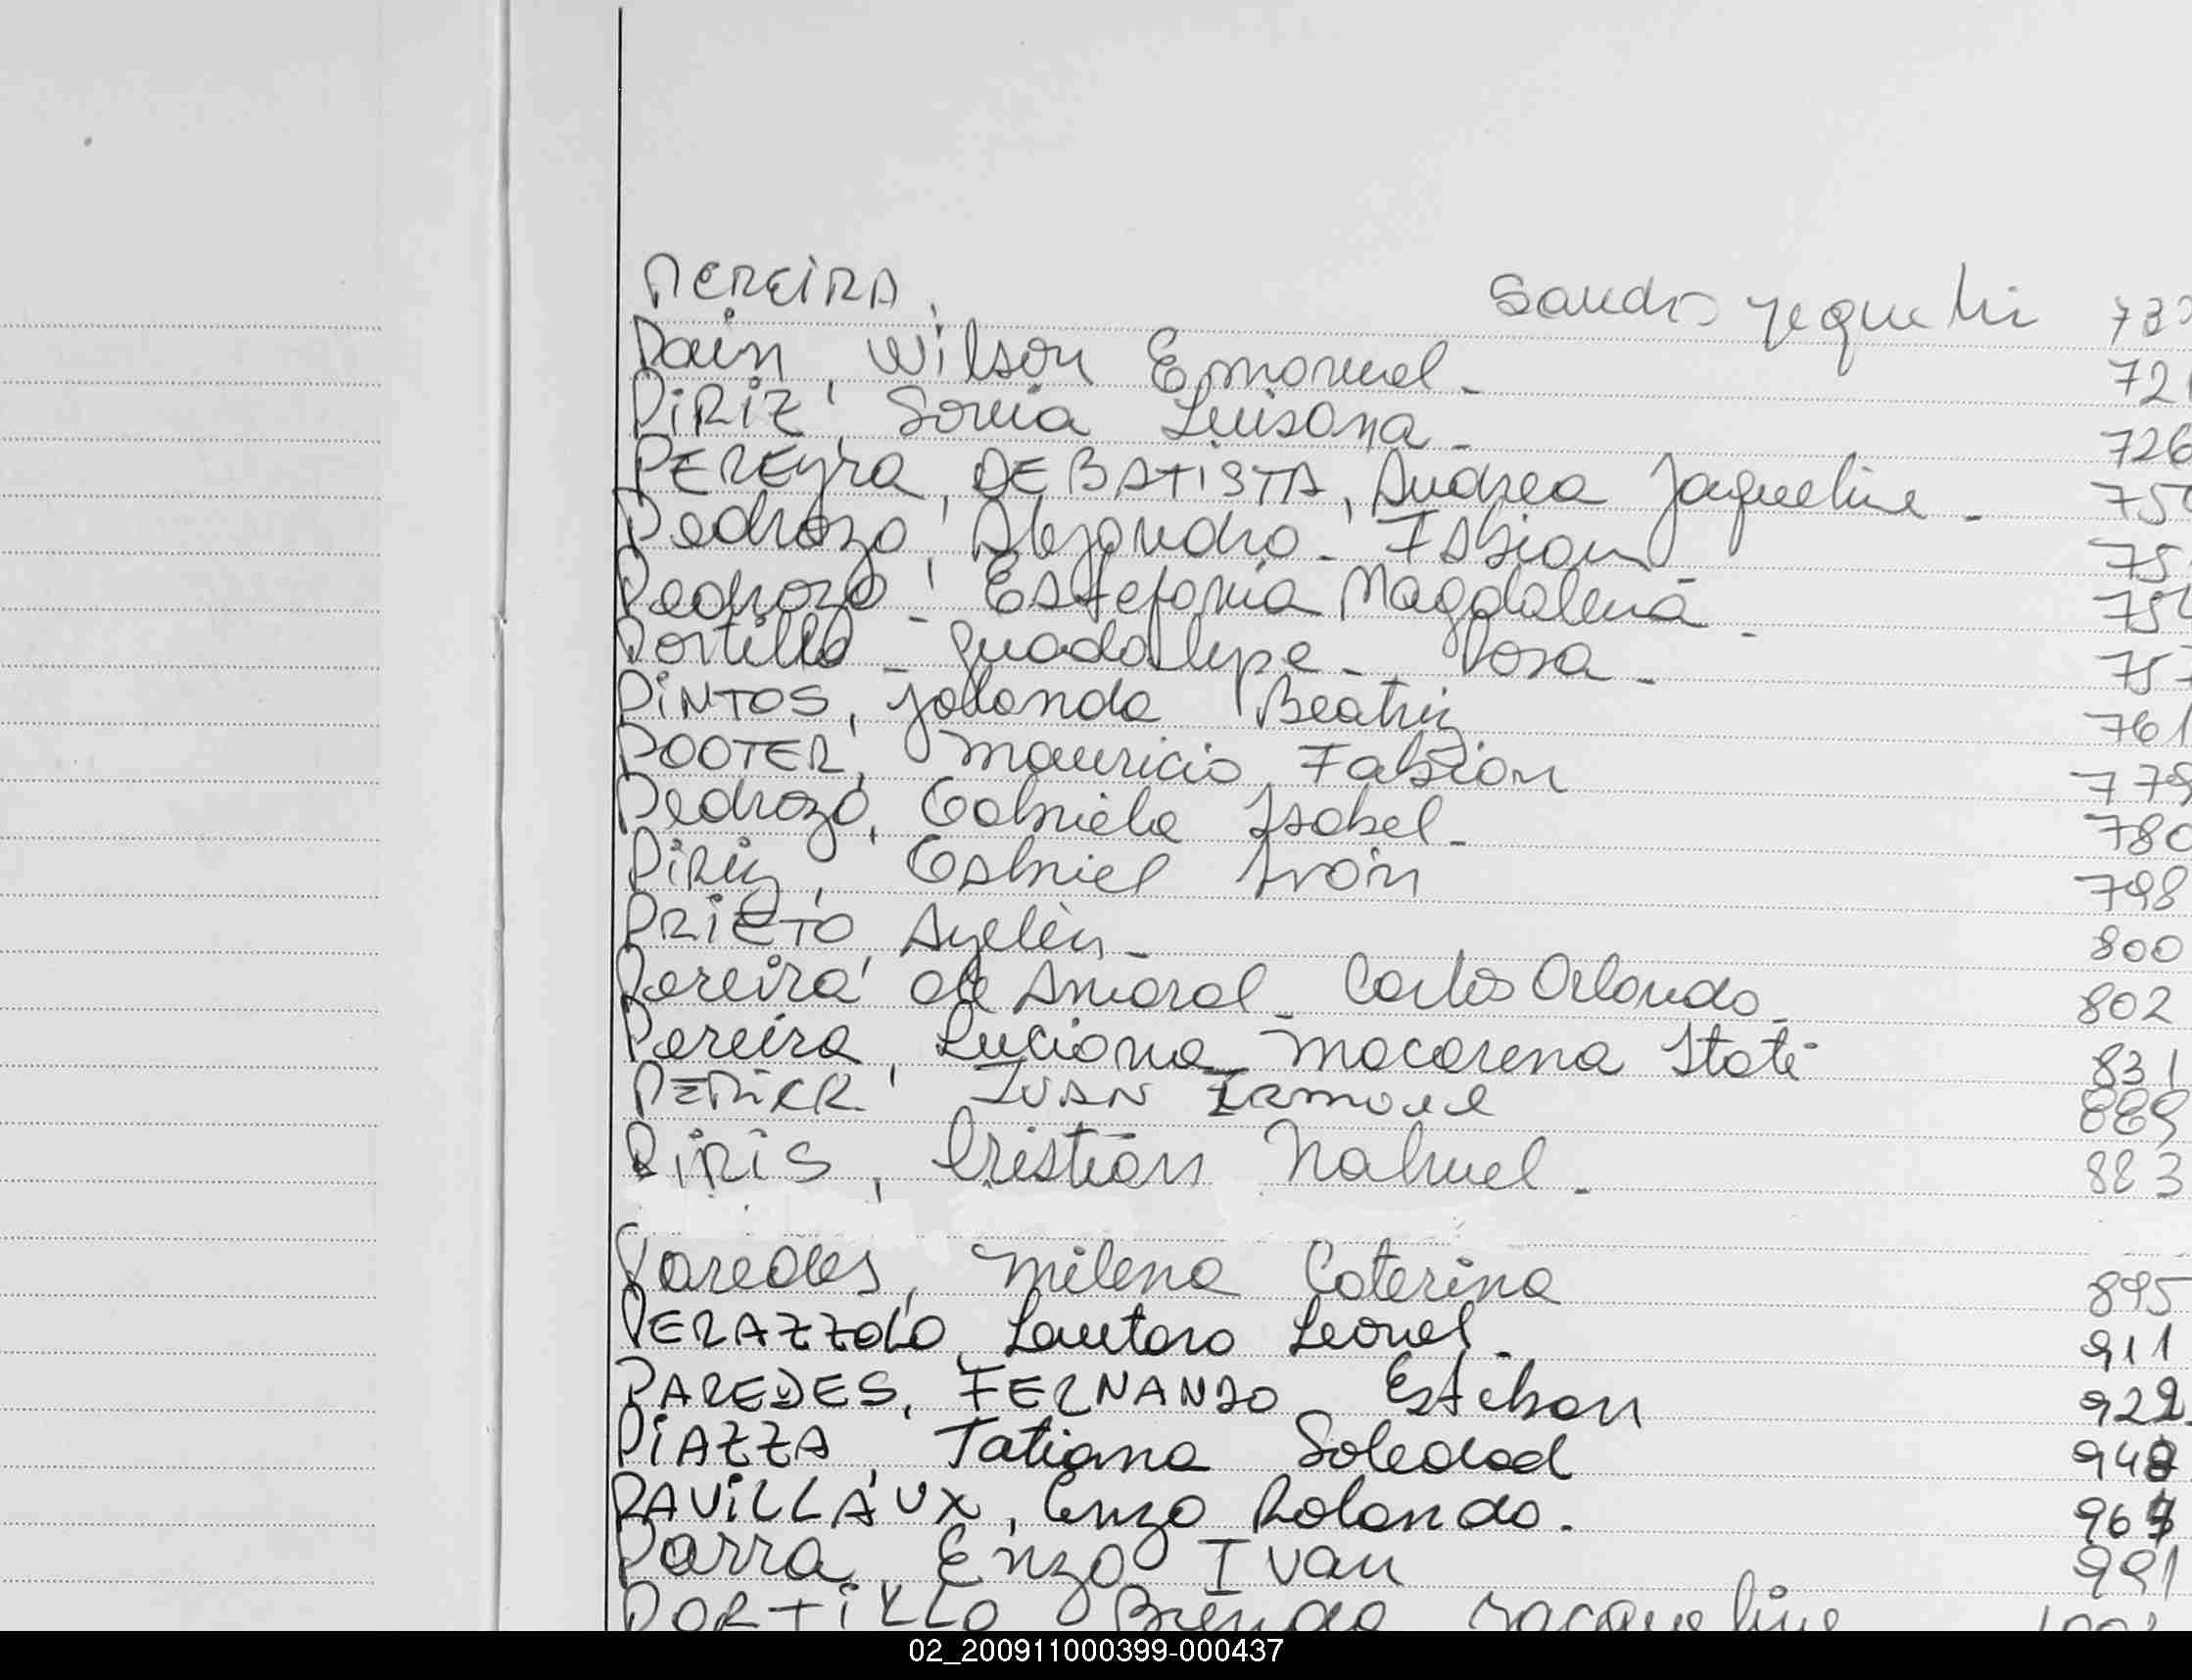 PEREIRA, Sandra Yequelin
Pain, Wilson Emanuel - 721
PiRiz, Sonia Luisana - 726
PEREyra, DE BATISTA, Andrea Jaqueline -
Pedrozo, Alejandro - Fabian
Pedrozo, Estefania Magdalena -
Portillo - Guadalupe - Rosa - 757
PiNTOS, Yolanda Beatriz 761
POOTER, Mauricio Fabian 779
Pedrozo, Gabriela Isabel - 780
Piriz, Gabriel Iván 798
PRiETO Ayelén - 800
Pereira de Amaral Carlos Orlando 802
Pereira, Luciana Macarena Itatí 831
IVAN
PiRiS, Cristian Nahuel - 883
Paredes, Milena Caterina 895
PERAZZOLO, Lautaro Leonel - 911
PAREDES, FERNANDO Esteban 922
PiAZZA, Tatiana Soledad
PAViLLAUX, Enzo Rolando.
Parra, Enzo Ivan 991
PORTiLLO Brenda Jacqueline
02_200911000399-000437